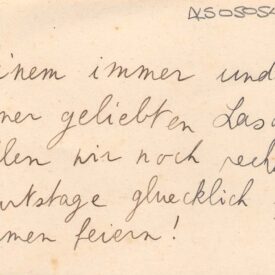 AS05054
inem immer und
ner geliebten Las
len wir noch rech
urtstage gluecklich
men feiern!